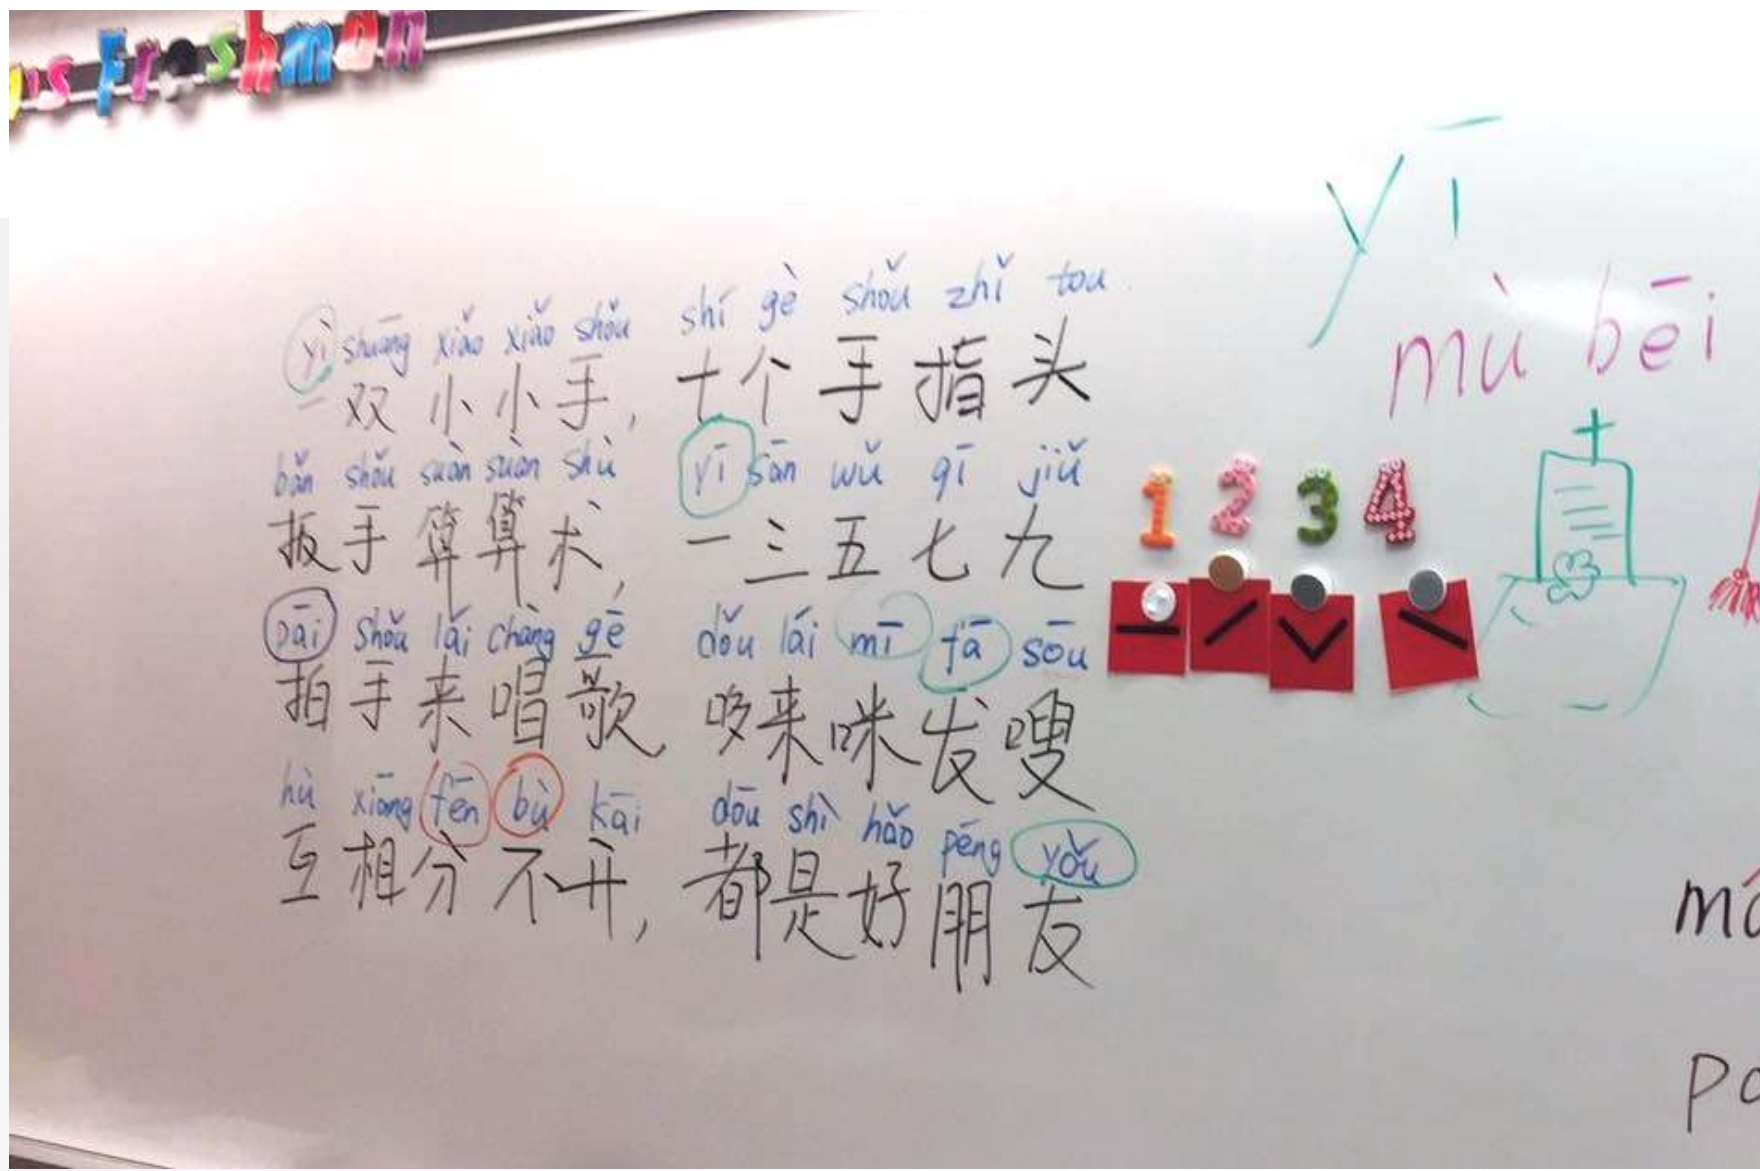 Freshman
yī
mù bēi
yì shuāng xiǎo xiǎo shǒu shí gè shǒu zhǐ tou
一双小小手,十个手指头
bǎn shǒu suàn suàn shù yī sān wǔ qī jiǔ
扳手算算术,一三五七九
pāi shǒu lái chàng gē dǒu lái mī fā sōu
拍手来唱歌,哆来咪发嗖
hù xiāng fēn bù kāi dōu shì hǎo péng yǒu
互相分不开,都是好朋友
1 2 3 4